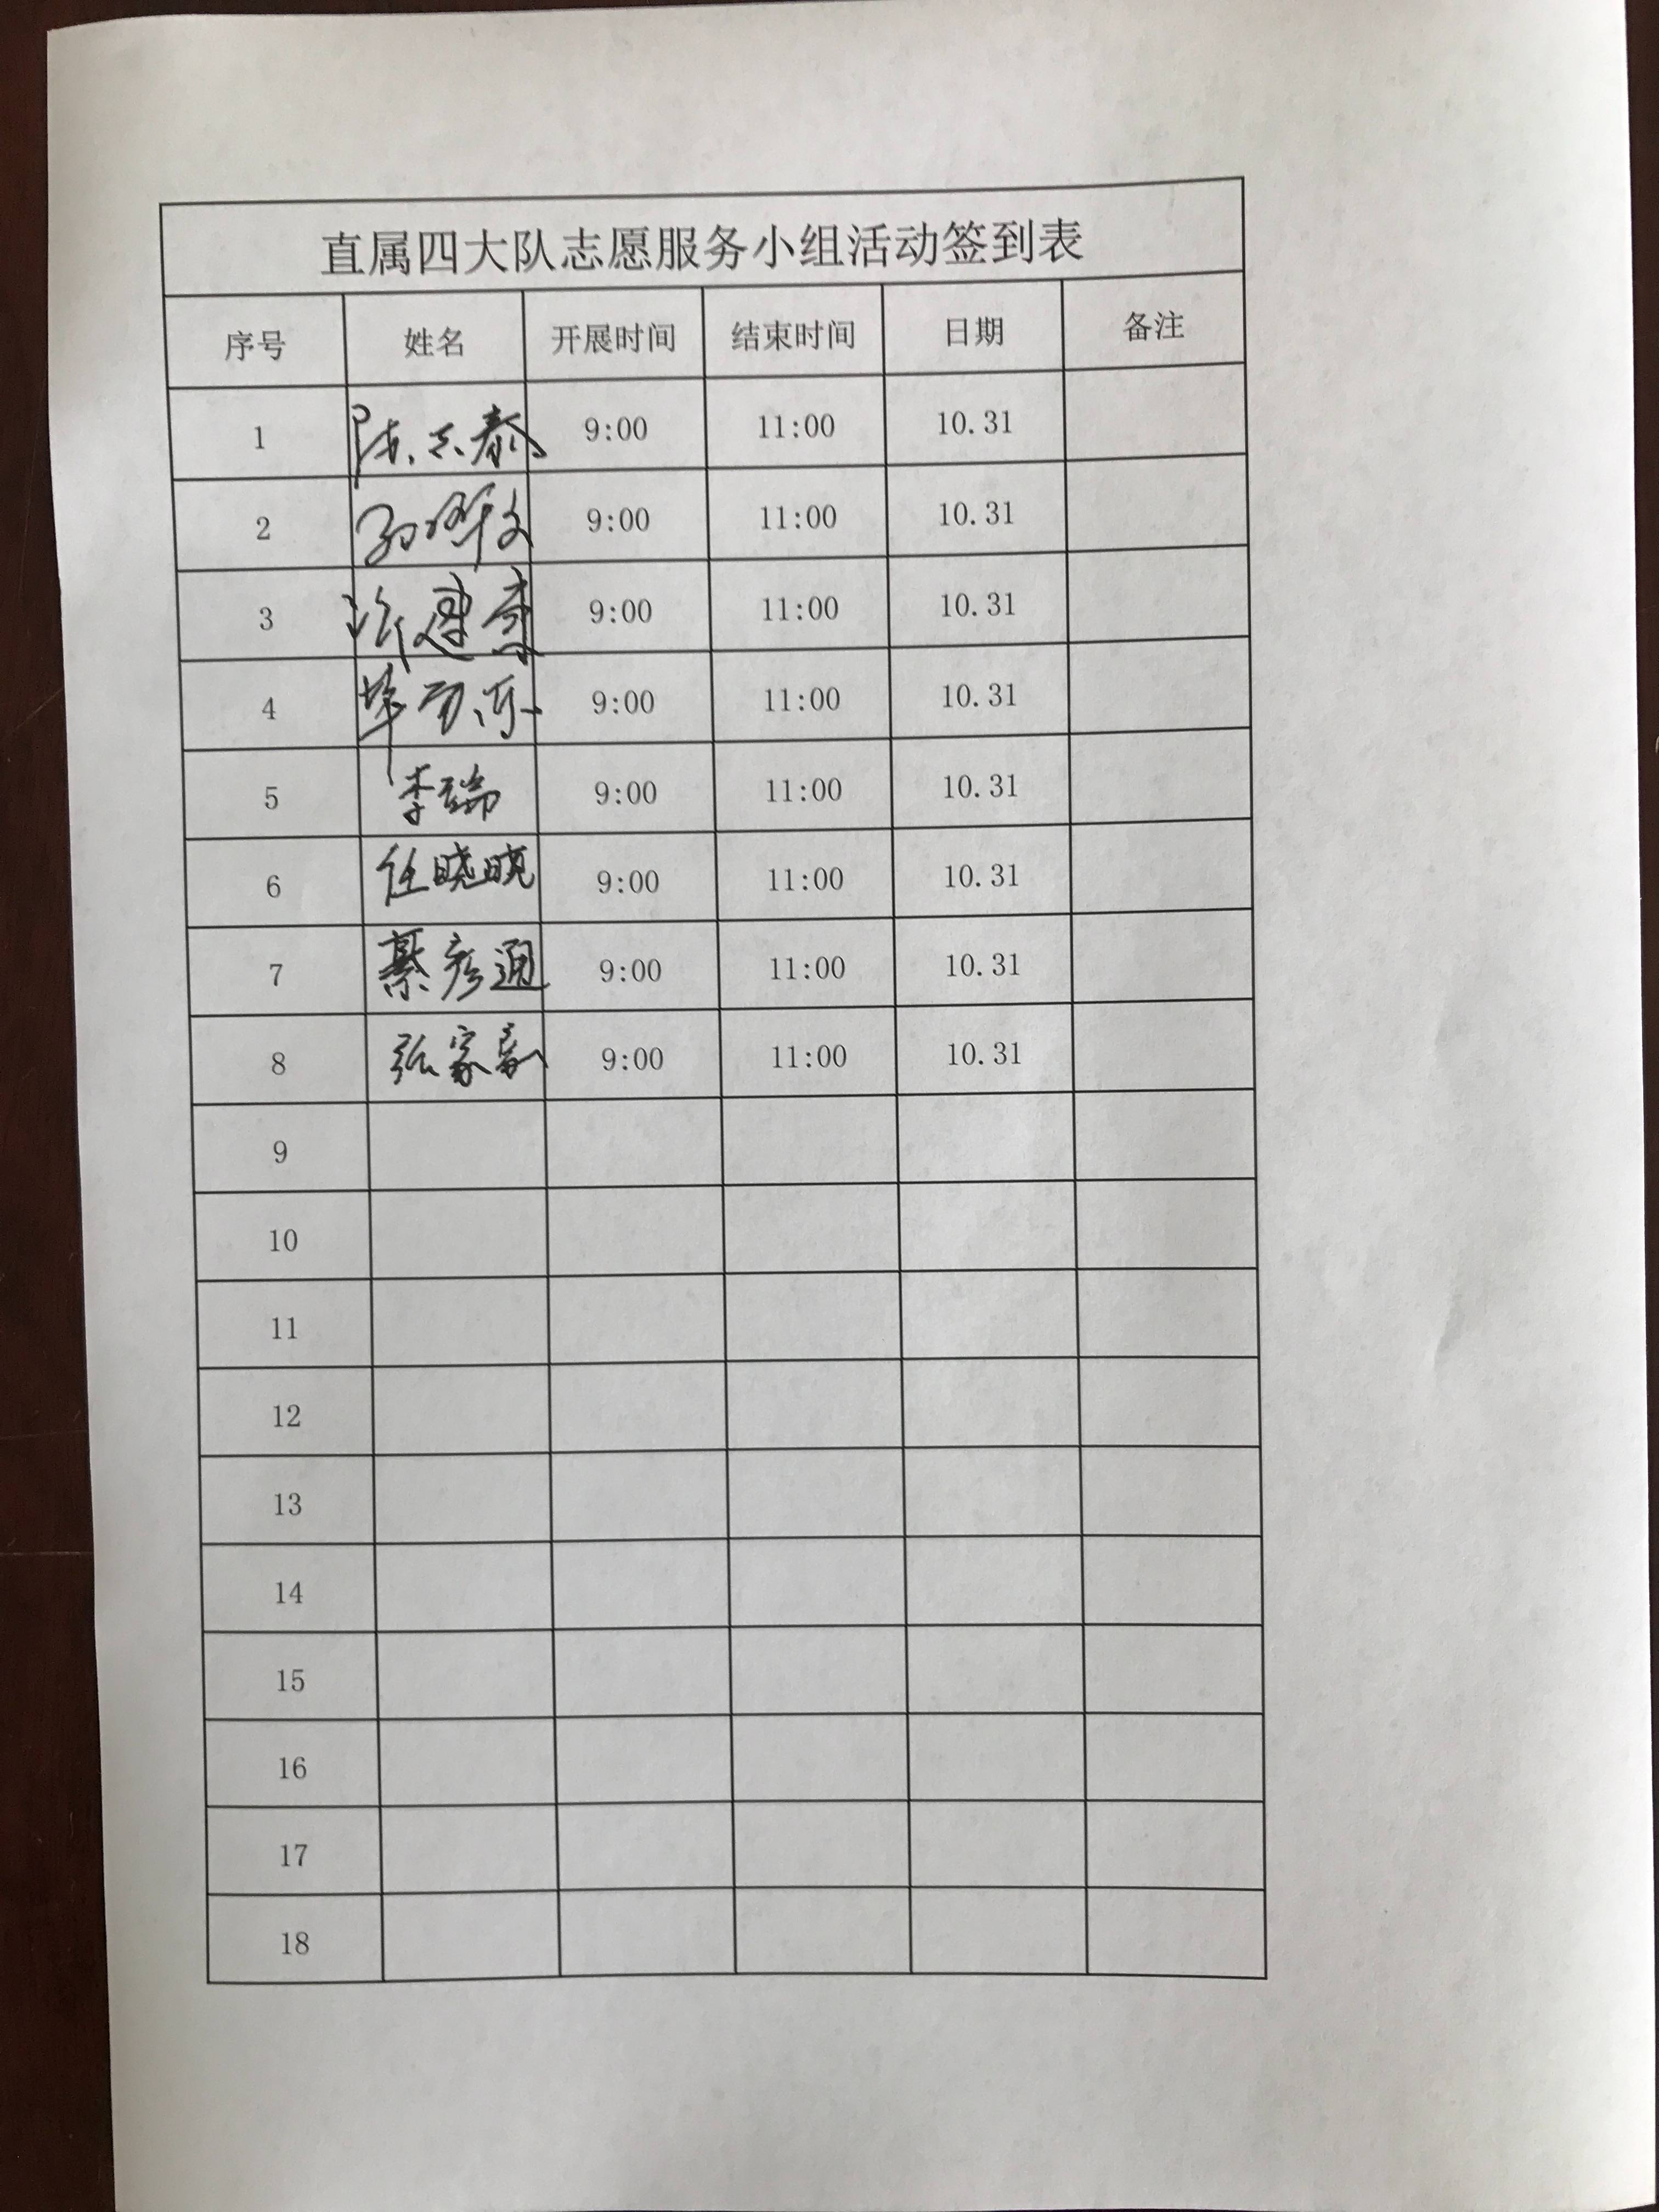 直属四大队志愿服务小组活动签到表
序号 姓名 开展时间 结束时间 日期 备注
1 陈志泰 9:00 11:00 10.31
2 9:00 11:00 10.31
3 9:00 11:00 10.31
4 9:00 11:00 10.31
5 李瑞 9:00 11:00 10.31
6 任晓晓 9:00 11:00 10.31
7 綦彦通 9:00 11:00 10.31
8 张家豪 9:00 11:00 10.31
9
10
11
12
13
14
15
16
17
18